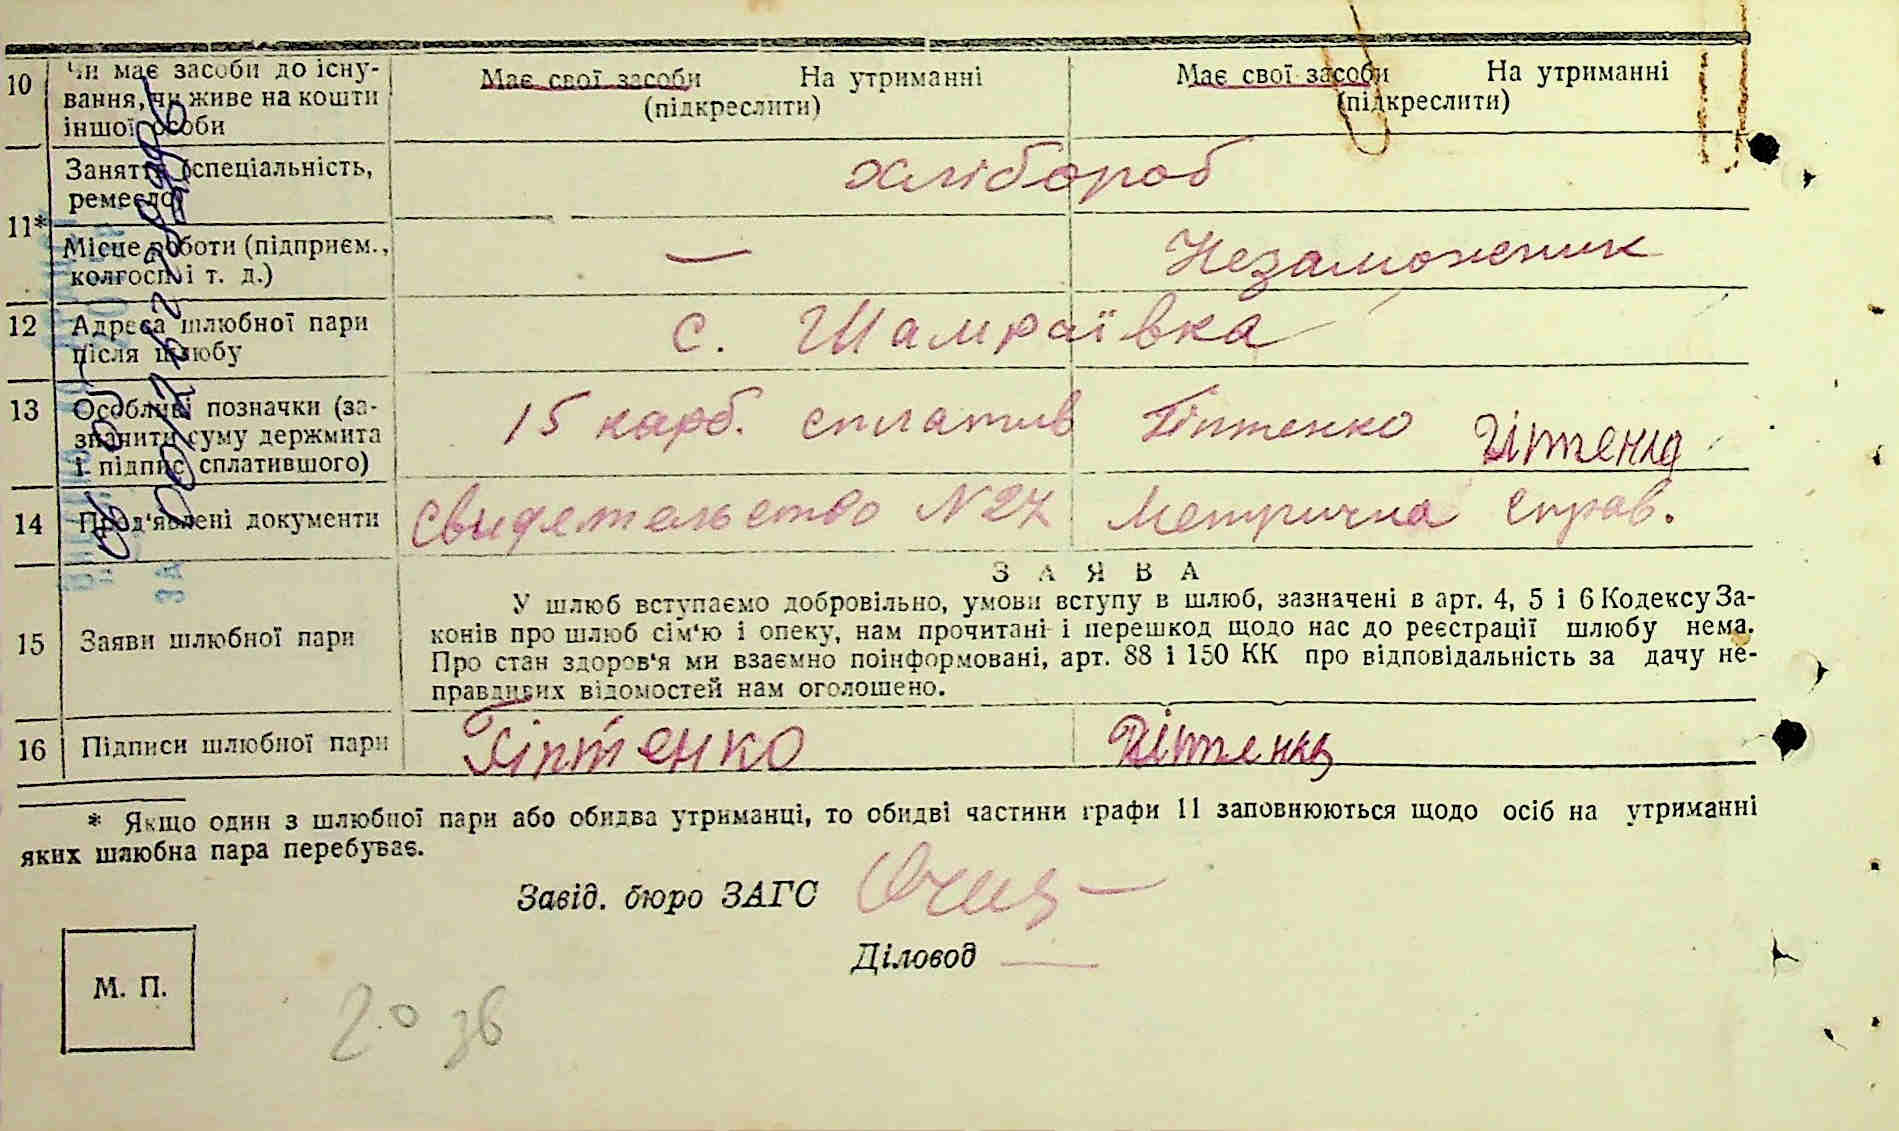 10 Чи має засоби до існу-
вання, чи живе на кошти
іншої особи
Має свої засоби На утриманні
(підкреслити)
Має свої засоби На утриманні
(підкреслити)
11* Заняття (спеціальність,
ремесло)
хлібороб
Місце роботи (підприєм.,
колгосп і т. д.)
— Незаможник
12 Адреса шлюбної пари
після шлюбу
с. Шамраївка
13 Особливі позначки (за-
значити суму держмита
і підпис сплатившого)
15 карб. сплатив Гіптенко
14 Пред'явлені документи
Свидетельство N 27 Метрична справ.
15 Заяви шлюбної пари
ЗАЯВА
У шлюб вступаємо добровільно, умови вступу в шлюб, зазначені в арт. 4, 5 і 6 Кодексу За-
конів про шлюб сім'ю і опеку, нам прочитані і перешкод щодо нас до реєстрації шлюбу нема.
Про стан здоров'я ми взаємно поінформовані, арт. 88 і 150 КК про відповідальність за дачу не-
правдивих відомостей нам оголошено.
16 Підписи шлюбної пари
Гіптенко
* Якщо один з шлюбної пари або обидва утриманці, то обидві частини графи 11 заповнюються щодо осіб на утриманні
яких шлюбна пара перебуває.
Завід. бюро ЗАГС
Діловод —
М. П.